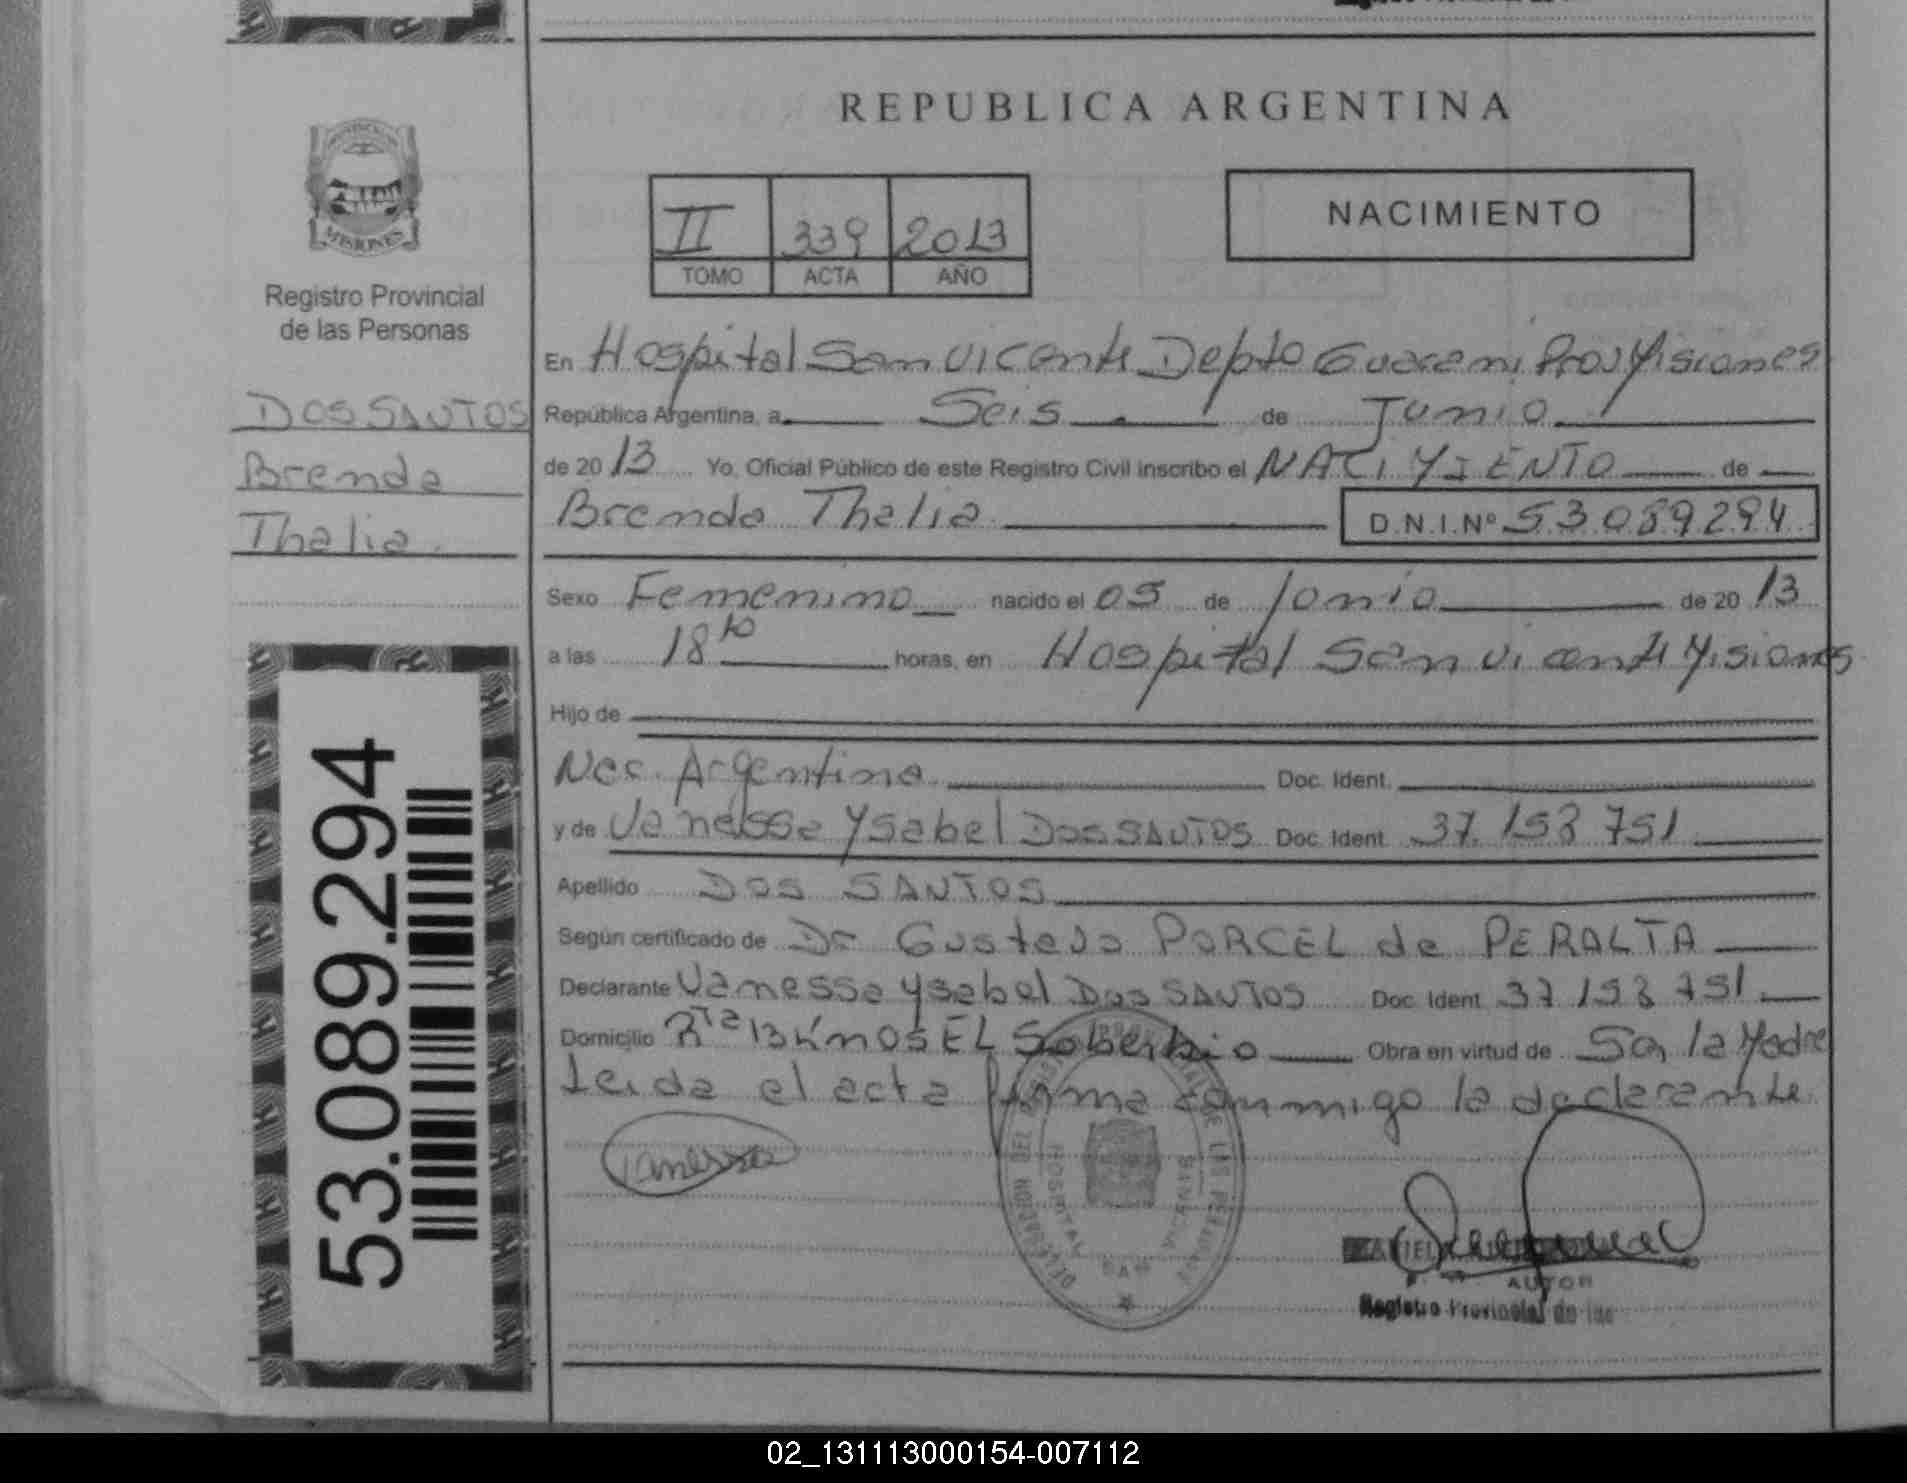 REPUBLICA ARGENTINA
MISIONES
Registro Provincial
de las Personas
DOS SANTOS
Brenda
Thalia
53.089.294
II 339 2013
TOMO ACTA AÑO
NACIMIENTO
En Hospital San Vicente Depto Guarani Prov Misiones
República Argentina, a Seis de Junio
de 2013 Yo, Oficial Público de este Registro Civil inscribo el NACIMIENTO de
Brenda Thalia D.N.I.Nº 53089294
Sexo Femenino nacido el 05 de Junio de 2013
a las 18 10 horas, en Hospital San Vicente Misiones
Hijo de
Nac. Argentina Doc. Ident.
y de Vanessa Ysabel DOS SANTOS Doc. Ident. 37.158 751
Apellido DOS SANTOS
Según certificado de Dr Gustavo PORCEL de PERALTA
Declarante Vanessa Ysabel DOS SANTOS Doc. Ident. 37 158 751
Domicilio Rta 13 Kmos EL Soberbio Obra en virtud de Ser la Madre
Leida el acta firma conmigo la declarante.
Vanessa
HOSPITAL SAN VICENTE
Registro Provincial de las
02_131113000154-007112